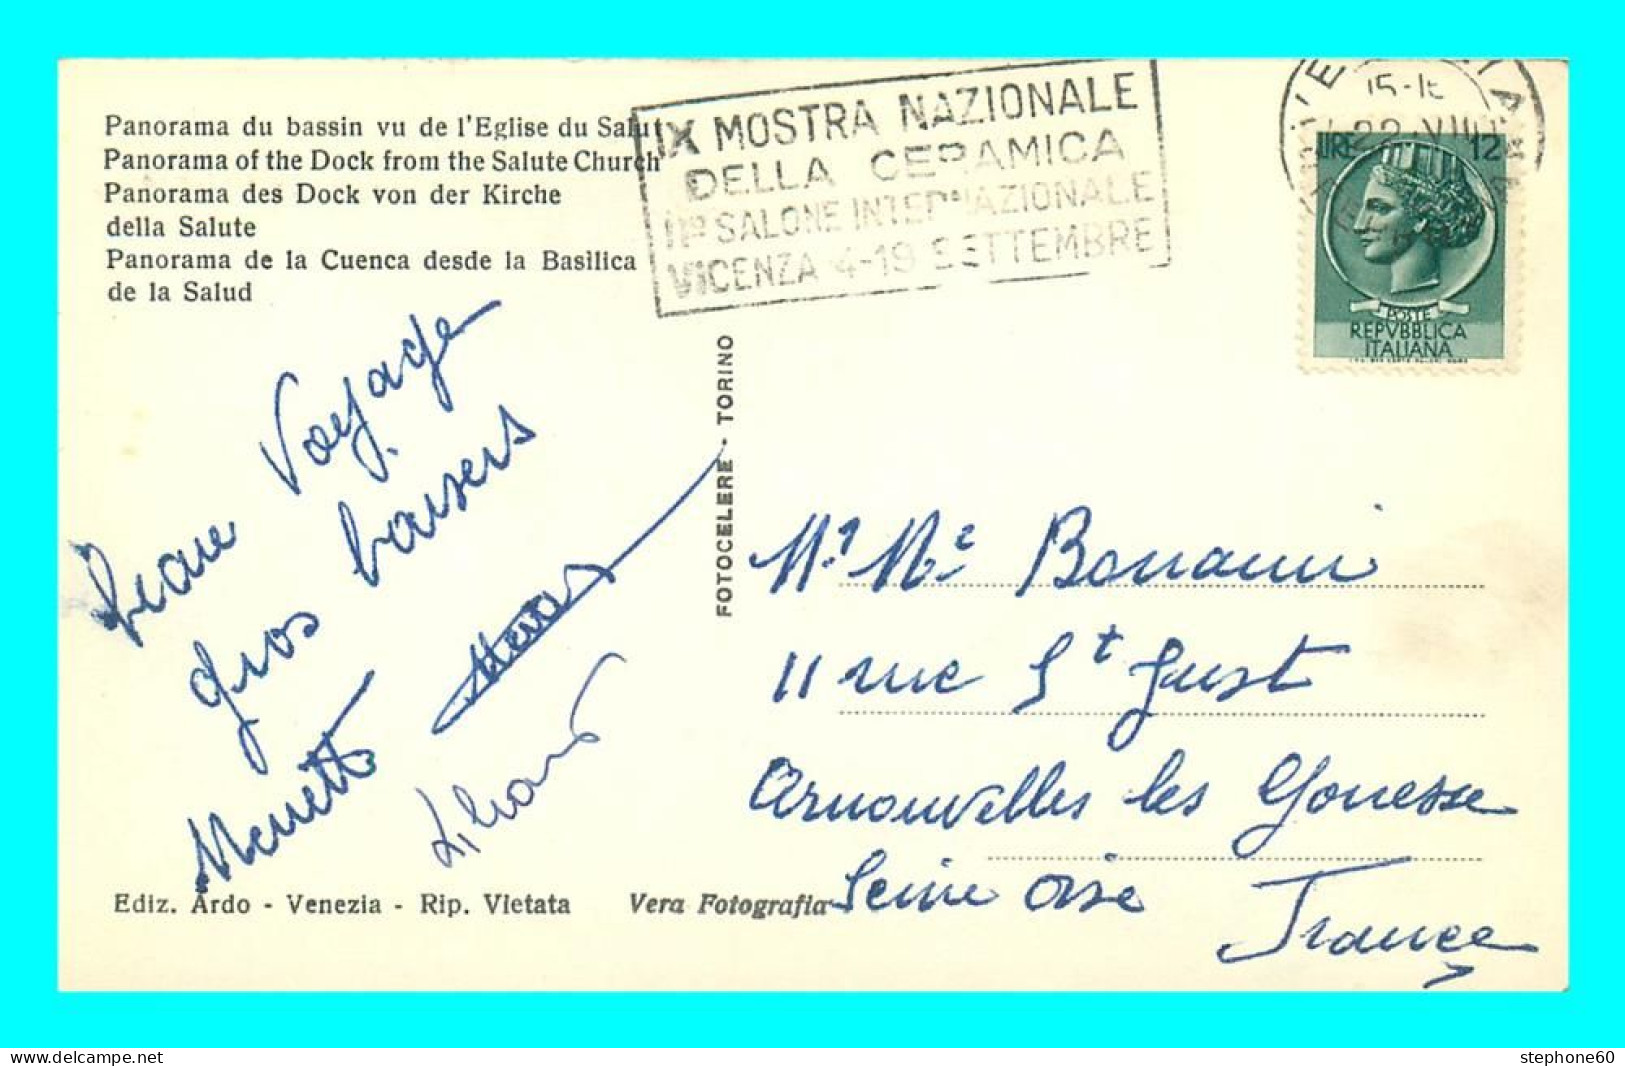 Panorama du bassin vu de l'Eglise du Salut
Panorama of the Dock from the Salute Church
Panorama des Dock von der Kirche
della Salute
Panorama de la Cuenca desde la Basilica
de la Salud
IX MOSTRA NAZIONALE
DELLA CERAMICA
IIº SALONE INTERNAZIONALE
VICENZA 4-19 SETTEMBRE
22·VIII
LIRE 12
POSTE
REPVBBLICA
ITALIANA
FOTOCELERE - TORINO
Voyage
gros baisers
Mr Me Bonanni
11 rue St Just
Arnouvelles les Gonesse
Seine Oise
France
Ediz. Ardo - Venezia - Rip. Vietata Vera Fotografia
www.delcampe.net
stephone60